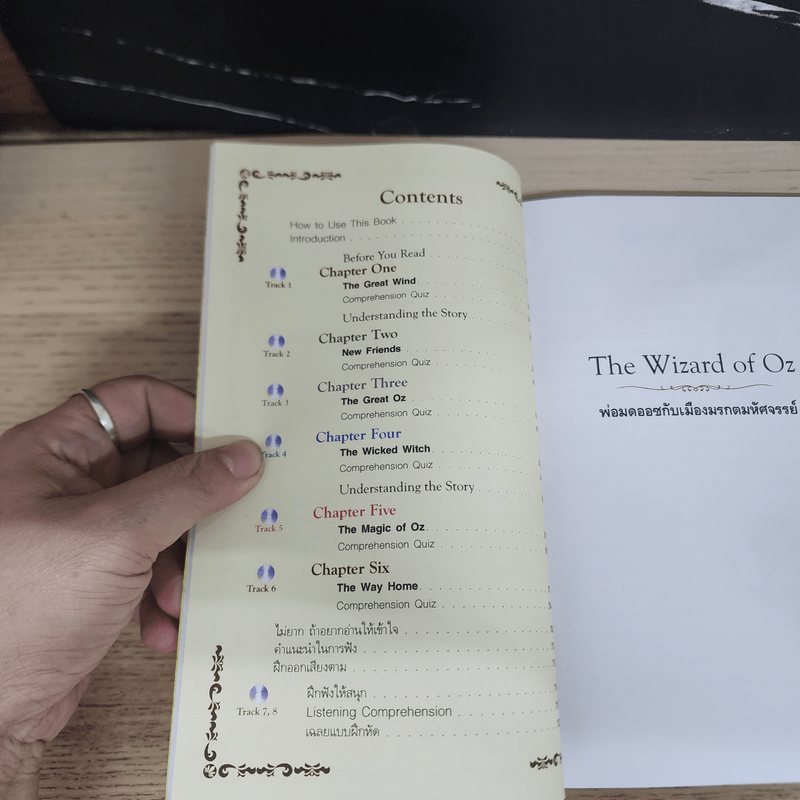 Contents
How to Use This Book
Introduction
Before You Read
Track 1
Chapter One
The Great Wind
Comprehension Quiz
Understanding the Story
Track 2
Chapter Two
New Friends
Comprehension Quiz
Track 3
Chapter Three
The Great Oz
Comprehension Quiz
Track 4
Chapter Four
The Wicked Witch
Comprehension Quiz
Understanding the Story
Track 5
Chapter Five
The Magic of Oz
Comprehension Quiz
Track 6
Chapter Six
The Way Home
Comprehension Quiz
ไม่ยาก ถ้าอยากอ่านให้เข้าใจ
คำแนะนำในการฟัง
ฝึกออกเสียงตาม
Track 7, 8
ฝึกฟังให้สนุก
Listening Comprehension
เฉลยแบบฝึกหัด
The Wizard of Oz
พ่อมดออซกับเมืองมรกตมหัศจรรย์